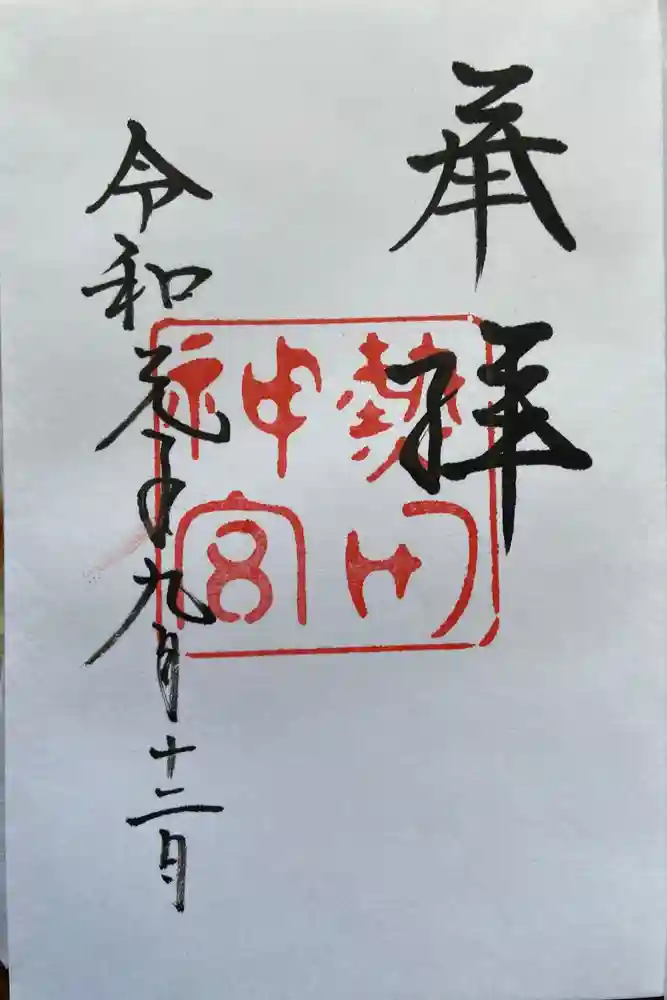 奉拝
熱田
神宮
令和元年九月十二日